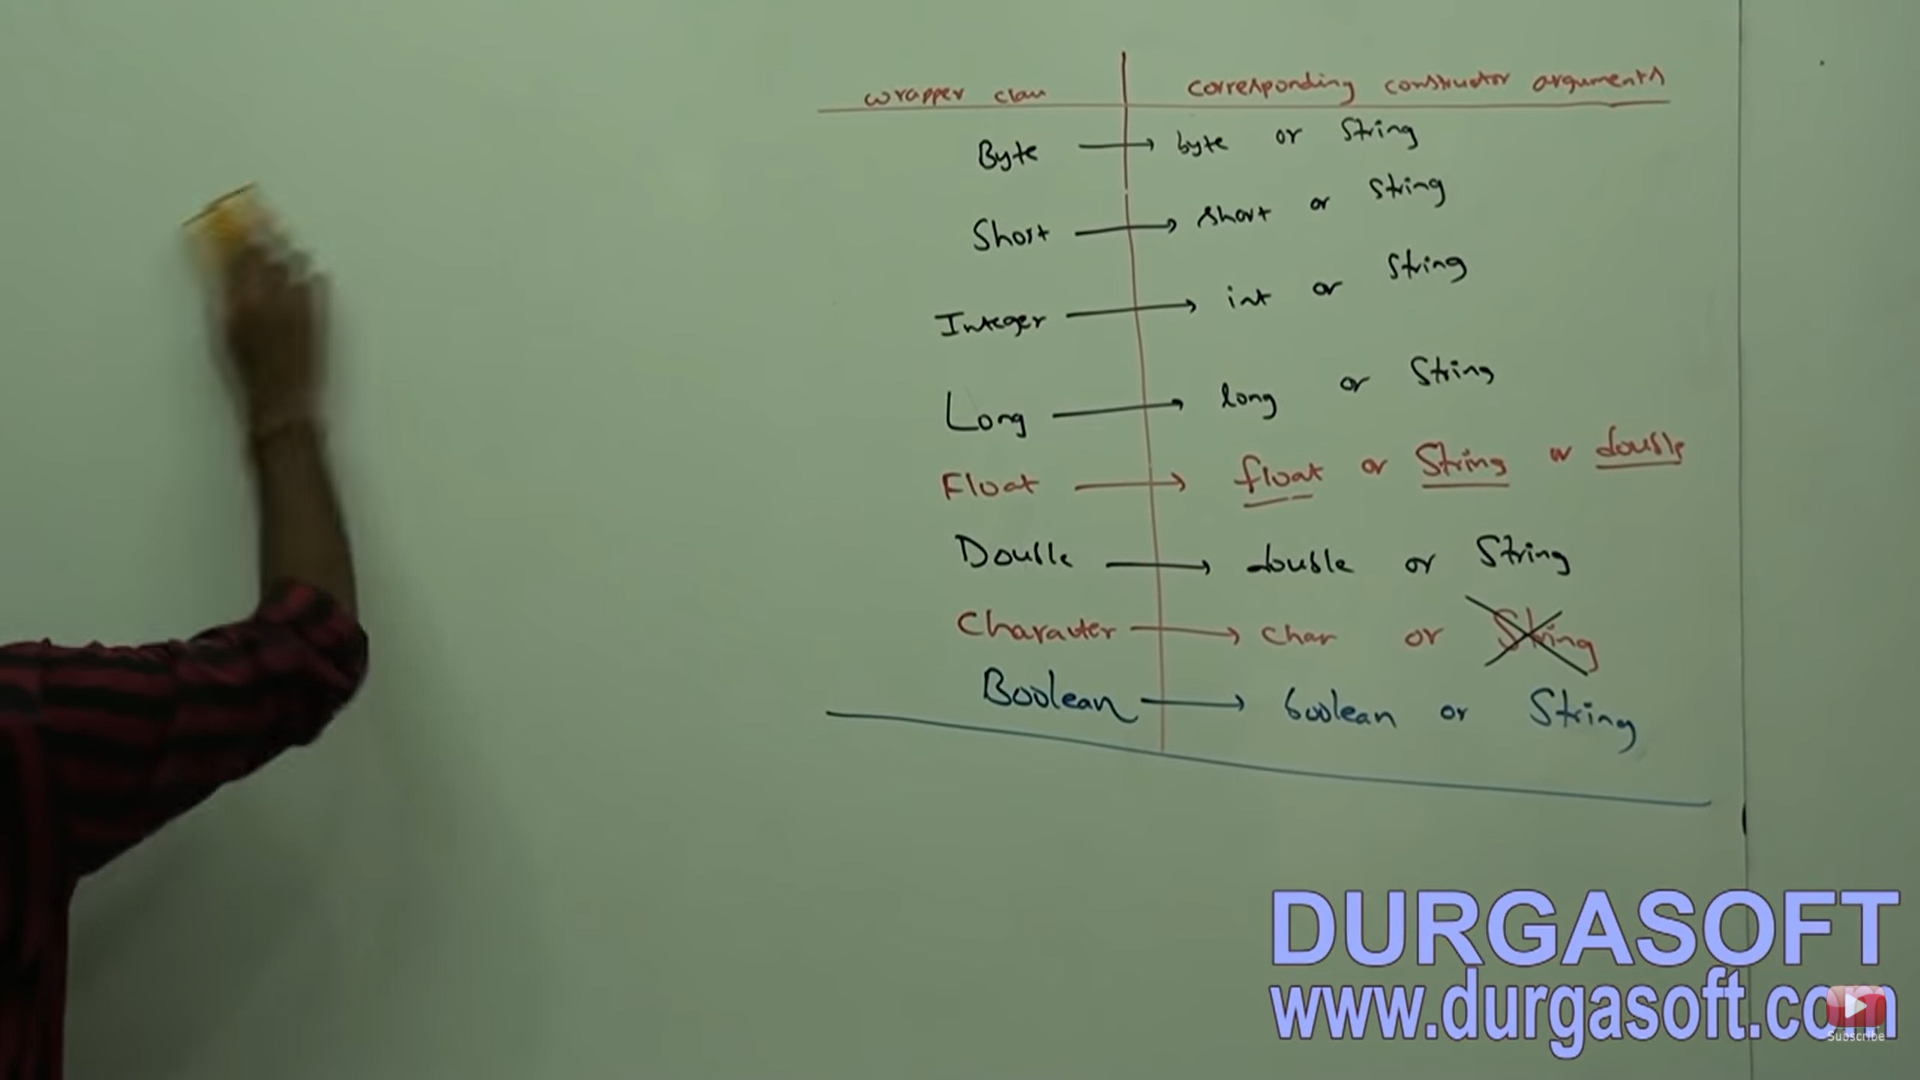 wrapper class corresponding constructor arguments
Byte → byte or String
Short → short or String
Integer → int or String
Long → long or String
Float → float or String or double
Double → double or String
Character → char or String
Boolean → boolean or String
DURGASOFT
www.durgasoft.com
Subscribe